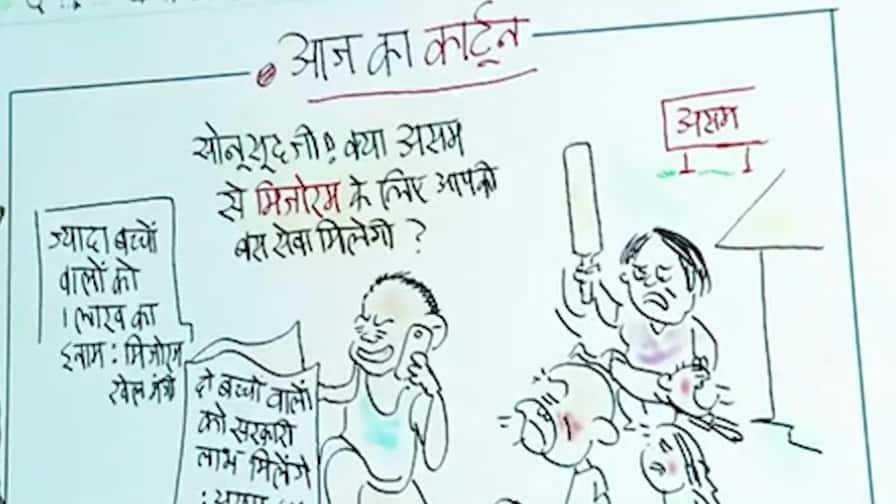 आज का कार्टून
सोनू सूद जी? क्या असम
से मिजोरम के लिए आपकी
बस सेवा मिलेगी ?
असम
ज्यादा बच्चों
वालों को
1 लाख का
इनाम : मिजोरम
खेल मंत्री
दो बच्चों वालों
को सरकारी
लाभ मिलेंगे
: